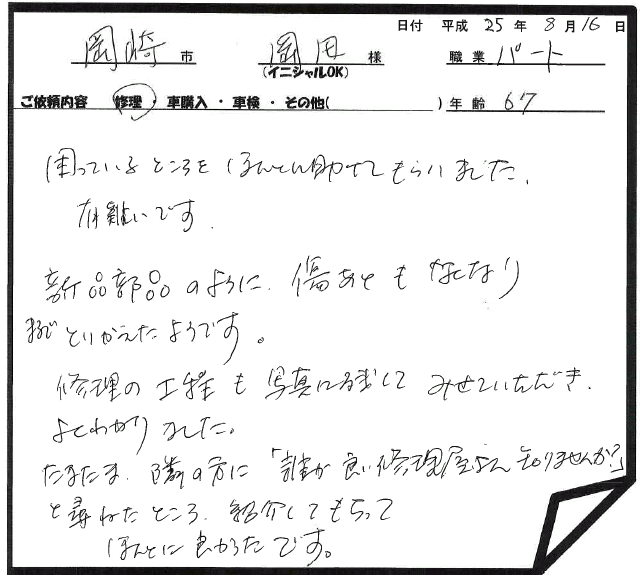 日付 平成 25 年 8 月 16 日
岡崎 市 岡田 様 職業 パート
(イニシャルOK)
ご依頼内容 修理・車購入・車検・その他( ) 年齢 67
困っているところを ほんとに助けてもらいました。
有難いです.
新品部品のように、傷あともなくなり
まるでとりかえたようです。
修理の工程も写真に残してみせていただき、
よくわかりました。
たまたま、隣の方に「誰か良い修理屋さん知りませんか?」
と尋ねたところ、紹介してもらって
ほんとに良かったです。